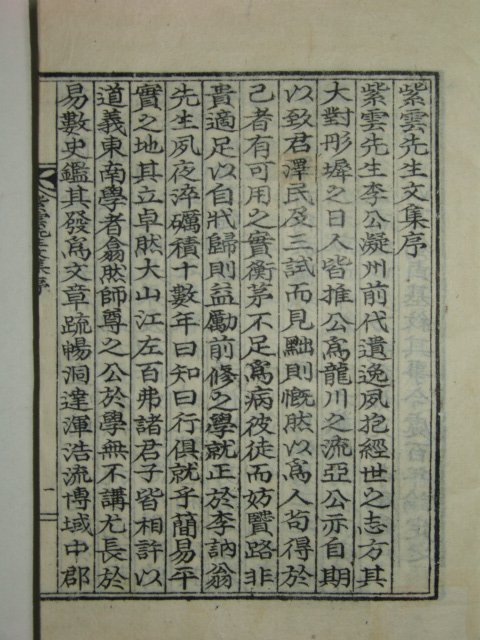 紫雲先生文集序
紫雲先生李公凝州前代遺逸夙抱經世之志方其
大對彤墀之日人皆推公爲龍川之流亞公亦自期
以致君澤民及三試而見黜則慨然以爲人苟得於
己者有可用之實衡茅不足爲病彼徒而妨賢路非
貴適足以自戕歸則益勵前修之學就正於李訥翁
先生夙夜淬礪積十數年曰知曰行俱就乎簡易平
實之地其立卓然大山江左百弗諸君子皆相許以
道義東南學者翕然師尊之公於學無不講尤長於
易數史鑑其發爲文章疏暢洞達渾浩流博域中郡
紫雲先生文集序
一